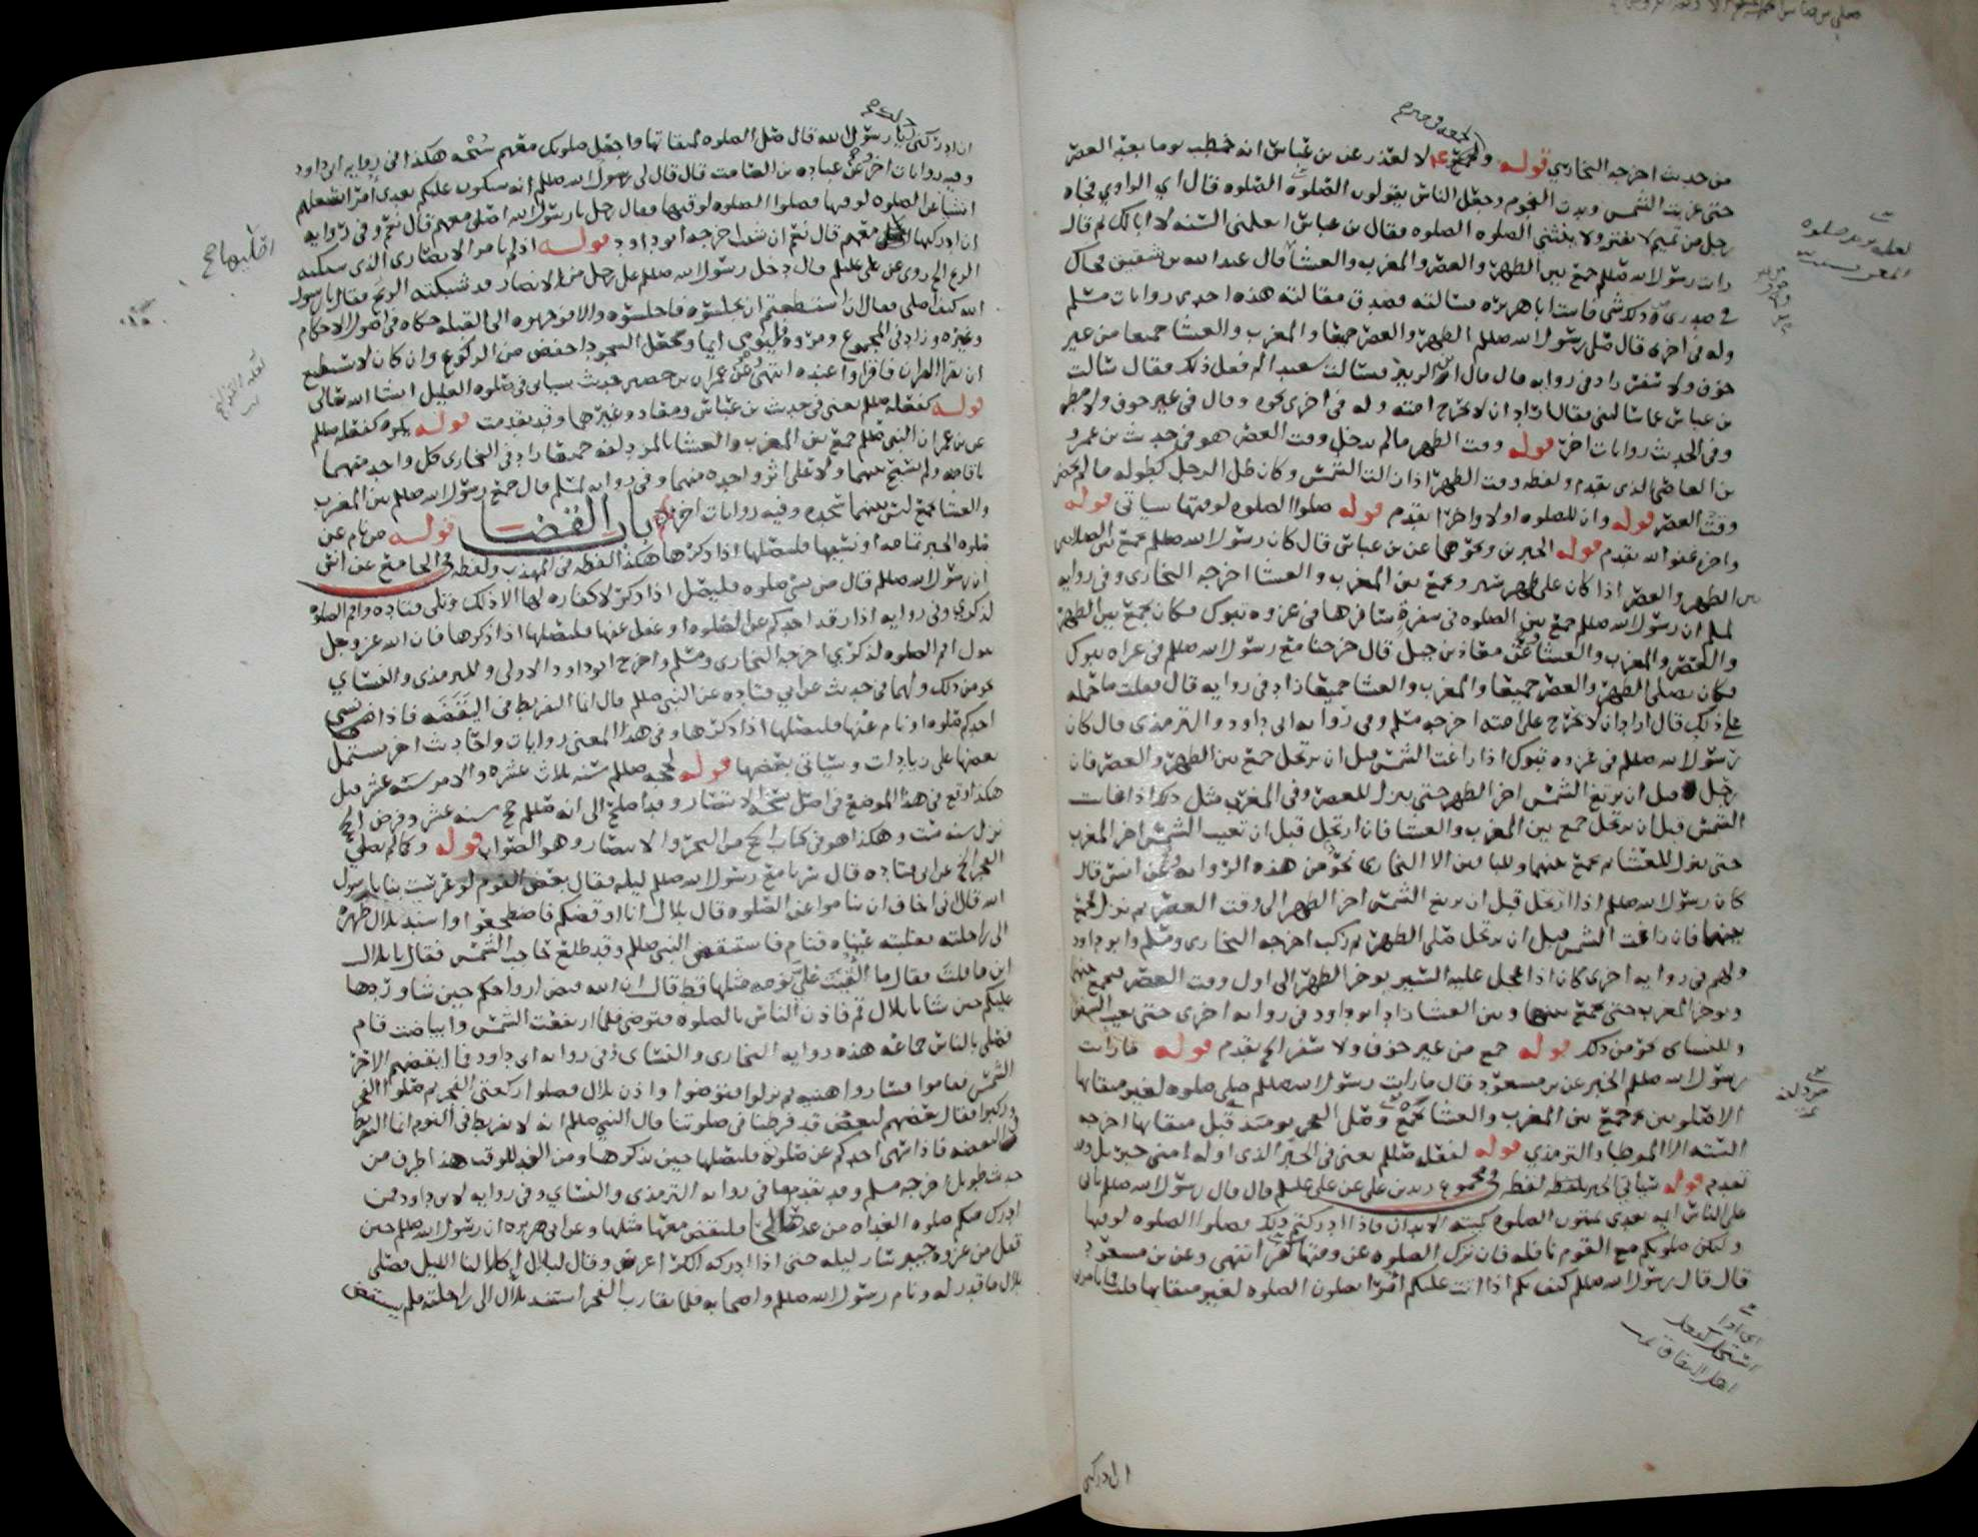 من حديث اخرجه البخاري قوله ولجمعه لا لعذر عن بن عباس انه خطب يوما بعد العصر
حتى غربت الشمس وبدت النجوم وجعل الناس يقولون الصلوه الصلوه قال اي الراوي فجاه
رجل من تميم لا يفتر ولا ينثني الصلوه الصلوه فقال بن عباس اتعلمني السنه لا ابا لك ثم قال
رايت رسول الله صللم جمع بين الظهر والعصر والمغرب والعشا قال عبد الله بن شقيق فحاك
في صدري من ذلك شي فاتيت ابا هريره فسالته فصدق مقالته هذه احدى روايات مسلم
وله في اخرى قال صلى رسول الله صللم الظهر والعصر جميعا والمغرب والعشا جميعا من غير
خوف ولا سفر زاد في روايه قال قال ابو الزبير فسالت سعيدا لم فعل ذلك فقال سالت
بن عباس عما سالتني فقال اراد ان لا يحرج امته وله في اخرى نحوه وقال في غير خوف ولا مطر
وفي الحديث روايات اخر قوله ووقت الظهر ما لم يدخل وقت العصر هو في حديث بن عمرو
بن العاص الذي تقدم ولفظه وقت الظهر اذا زالت الشمس وكان ظل الرجل كطوله ما لم يحضر
وقت العصر قوله وان للصلوه اولا واخرا تقدم قوله صلوا الصلوه لوقتها سياتي قوله
واخره عفو الله تقدم قوله الخبرين ونحوهما عن بن عباس قال كان رسول الله صللم يجمع بين الصلاتين
بين الظهر والعصر اذا كان على ظهر سير ويجمع بين المغرب والعشا اخرجه البخاري وفي روايه
لمسلم ان رسول الله صللم جمع بين الصلوه في سفرة سافرها في غزوه تبوك فكان يجمع بين الظهر
والعصر والمغرب والعشا وعن معاذ بن جبل قال خرجنا مع رسول الله صللم في غزاه تبوك
فكان يصلي الظهر والعصر جميعا والمغرب والعشا جميعا زاد في روايه قال فقلت ما حمله
على ذلك قال اراد ان لا يحرج على امته اخرجه مسلم وفي روايه ابي داود والترمذي قال كان
رسول الله صللم في غزوه تبوك اذا زاغت الشمس قبل ان يرتحل جمع بين الظهر والعصر فان
رحل قبل ان تزيغ الشمس اخر الظهر حتى ينزل للعصر وفي المغرب مثل ذلك اذا غابت
الشمس قبل ان يرتحل جمع بين المغرب والعشا فان ارتحل قبل ان تغيب الشمس اخر المغرب
حتى ينزل للعشا ثم يجمع بينهما وللباقين الا البخاري نحو من هذه الروايه وعن انس قال
كان رسول الله صللم اذا ارتحل قبل ان تزيغ الشمس اخر الظهر الى وقت العصر ثم نزل فجمع
بينهما فان زاغت الشمس قبل ان يرتحل صلى الظهر ثم ركب اخرجه البخاري ومسلم وابو داود
ولهم في روايه اخرى كان اذا عجل عليه السير يوخر الظهر الى اول وقت العصر فيجمع بينهما
ويوخر المغرب حتى يجمع بينها وبين العشا زاد ابو داود في روايه اخرى حتى يغيب الشفق
وللنساي نحو من ذلك قوله جمع من غير خوف ولا سفر الخ تقدم قوله ما رايت
رسول الله صللم الخبر عن بن مسعود قال ما رايت رسول الله صللم صلى صلوه لغير ميقاتها
الا صلوتين جمع بين المغرب والعشا بجمع وصلى الفجر يومئذ قبل ميقاتها اخرجه
السته الا الموطا والترمذي قوله لفعله صللم يعني في الخبر الذي اوله امني جبريل وقد
تقدم قوله سياتي الخبر لفظه في مجموع زيد بن علي عن علي عليلم قال قال رسول الله صللم ياتي
على الناس ايمه بعدي يميتون الصلوه كميته الابدان فاذا ادركتم ذلك فصلوا الصلوه لوقتها
ولتكن صلوتكم مع القوم نافله فان ترك الصلوه عن وقتها كفر انتهى وعن بن مسعود
قال قال رسول الله صللم كيف بكم اذا اتت عليكم امرا يصلون الصلوه لغير ميقاتها قلت فما تامرني
ان ادركني
ان ادركني يا رسول الله قال صل الصلوه لميقاتها واجعل صلوتك معهم سُبْحه هكذا في روايه ابي داود
وفيه روايات اخر وعن عباده بن الصامت قال قال لي رسول الله صللم انه سيكون عليكم بعدي امرا تشغلهم
اشيا عن الصلوه لوقتها فصلوا الصلوه لوقتها فقال رجل يا رسول الله اصلي معهم قال نعم وفي روايه
ان ادركتها معهم قال نعم ان شئت اخرجه ابو داود قوله اذ لم يامر الانصاري الذي شبكته
الريح الخ روى عن علي عليلم قال دخل رسول الله صللم على رجل من الانصار قد شبكته الريح فقال يا رسول
الله كيف اصلي فقال ان استطعتم ان تجلسوه فاجلسوه والا فوجهوه الى القبله حكاه في اصول الاحكام
وغيره وزاد في المجموع ومروه فليومي ايما ويجعل السجود اخفض من الركوع وان كان لا يستطيع
ان يقرا القران فاقراوا عنده انتهى وعن عمران بن حصين حديث سياتي في صلوه العليل انشا الله تعالى
قوله كفعله صللم يعني في حديث بن عباس ومعاذ وغيرهما وقد تقدمت قوله يكره كفعله صللم
عن بن عمر ان النبي صللم جمع بين المغرب والعشا بالمزدلفه جميعا زاد في البخاري كل واحد منهما
باقامه ولم يسبح بينهما ولا على اثر واحده منهما وفي روايه لمسلم قال جمع رسول الله صللم بين المغرب
والعشا بجمع ليس بينهما سجده وفيه روايات اخر باب القضا قوله من نام عن
صلوه الخبر تمامه او نسيها فليصلها اذا ذكرها هكذا لفظه في المهذب ولفظه في الجامع عن انس
ان رسول الله صللم قال من نسي صلوه فليصل اذا ذكر لا كفاره لها الا ذلك وتلى قتاده واقم الصلوه
لذكري وفي روايه اذا رقد احدكم عن الصلوه او غفل عنها فليصلها اذا ذكرها فان الله عز وجل
يقول اقم الصلوه لذكري اخرجه البخاري ومسلم واخرج ابو داود الاولى وللترمذي والنساي
نحو من ذلك ولهما في حديث عن ابي قتاده عن النبي صللم قال انما التفريط في اليقظه فاذا نسي
احدكم صلوه او نام عنها فليصلها اذا ذكرها وفي هذا المعنى روايات واحاديث اخر يشتمل
بعضها على زيادات وسياتي بعضها قوله لحجه صللم سنه ثلاث عشره والامر سنه عشر قبل
هكذا وقع في هذا الموضع في اصل نسخه الانتصار وقد اصلح الى انه صللم حج سنه عشر وفرض الحج
نزل سنه ست وهكذا هو في كتاب الحج من البحر والانتصار وهو الصواب قوله وكما لم يصلي
الفجر الخ عن ابي قتاده قال سرنا مع رسول الله صللم ليله فقال بعض القوم لو عرست بنا يا رسول
الله قال اني اخاف ان تناموا عن الصلوه قال بلال انا اوقظكم فاضطجعوا واسند بلال ظهره
الى راحلته فغلبته عيناه فنام فاستيقظ النبي صللم وقد طلع حاجب الشمس فقال يا بلال
اين ما قلت فقال ما القيت علي نومه مثلها قط قال ان الله قبض ارواحكم حين شا وردها
عليكم حين شا يا بلال قم فاذن الناس بالصلوه فتوضى فلما ارتفعت الشمس وابياضت قام
فصلى بالناس جماعه هذه روايه البخاري والنساي وفي روايه ابي داود فما ايقضهم الا حر
الشمس فقاموا فساروا هنيه ثم نزلوا فتوضوا واذن بلال فصلوا ركعتي الفجر ثم صلوا الفجر
وركبوا فقال بعضهم لبعض قد فرطنا في صلوتنا قال النبي صللم انه لا تفريط في النوم انما التفريط
في اليقضه فاذا سهى احدكم عن صلوه فليصلها حين يذكرها ومن الغد للوقت هذا طرف من
حديث طويل اخرجه مسلم وقد تقدم معنا في روايه الترمذي والنساي وفي روايه لابي داود فمن
ادرك منكم صلوه الغداه من غد صالحا فليقض معها مثلها وعن ابي هريره ان رسول الله صللم حين
قفل من غزوه خيبر سار ليله حتى اذا ادركه الكرى عرس وقال لبلال اكلا لنا الليل فصلى
بلال ما قدر له ونام رسول الله صللم واصحابه فلما تقارب الفجر استند بلال الى راحلته فلم يستيقض